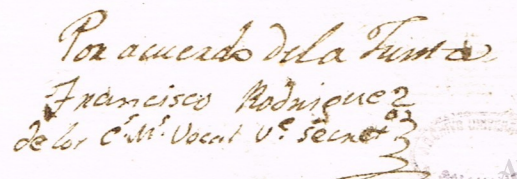 Por acuerdo dela Junta
Francisco Rodriguez
de los C. M. Vocal V.e Secret.o